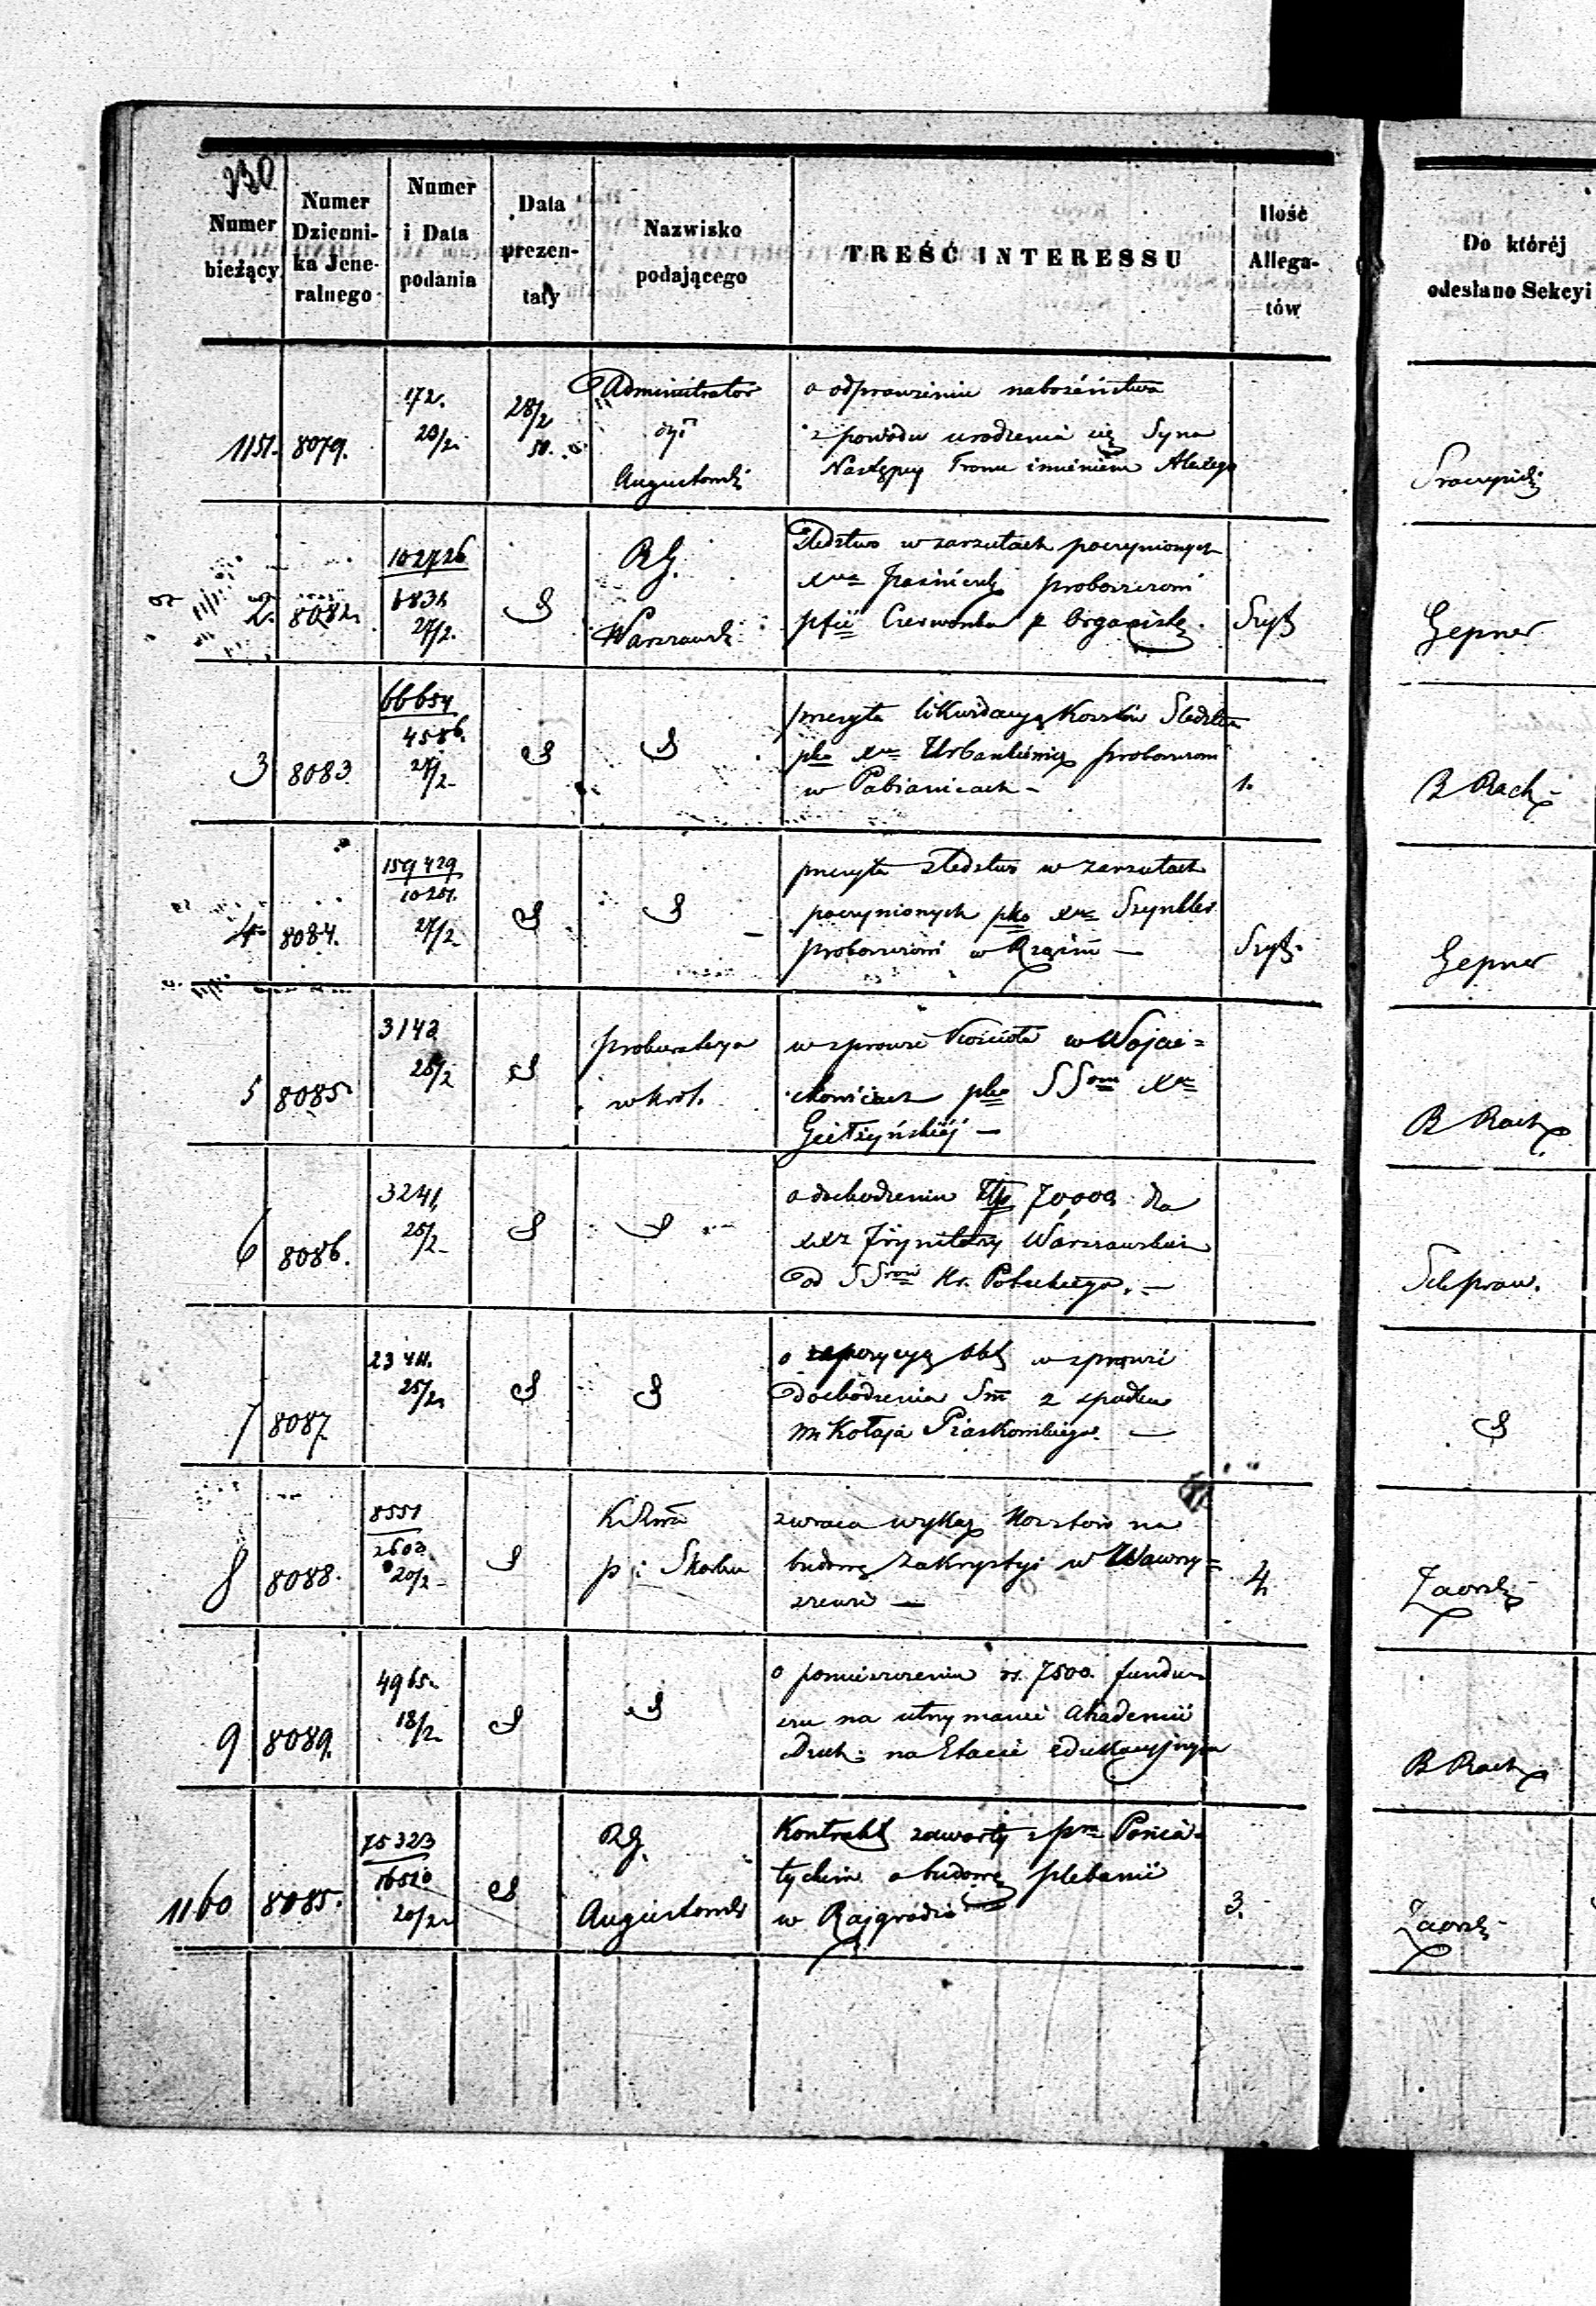 230
Numer bieżący
Numer Dzienni-ka Jene-ralnego
Numer i Data podania
Data prezen-taty
Nazwisko podającego
TREŚĆ INTERESSU
Ilość Allega-tów
Do któréj odesłano Sekcyi
1151. 8079. 172. 20/2. 28/2 50. Administrator
dyi
Augustowski
o odprawieniu nabożeństwa
z powodu urodzenia się Syna
Następcy Tronu imieniem Alexego
2. 8082. 102726
6831
27/2.
RG.
Warszawski
śledztwo w zarzutach poczynionych
proboszczowi
pfii Czerwonka p Organistę.
Szyt
Gepner
3 8083 66654
4586.
27/2
przesyła likwidacyą kosztów Śledztwa
pko Urbankiewicz proboszczowi
w Pabianicach –
1.
B Rach
4 8084. 159429
1025.
27/2
przesyła śledztwo w zarzutach
poczynionych pko
proboszczowi w
Szyt.
Gepner
5 8085 3142
28/2
Prokuratorya
w król.
w sprawie kościoła w Wojcie=
chowicach pko SSom
–
B Rach
6 8086. 3241,
25/2
o dochodzeniu Złp 70,000 dla
Trynitarzy Warszawskich
od SSrów Hr. Potockiego. –
Sekpraw.
7 8087 23411.
25/2
w sprawie
dochodzenia z spadku
Mikołaja Piaskowskiego. –
8 8088. 8551
2602.
20/2
KRwa
p i Skarbu
zwraca wykaz kosztów na
budowę zakrystyi w Wawrzy=
szewie –
4
Zaorski
9 8089. 4965.
18/2
o pomieszczeniu rs. 7500. fundu
szu na utrzymanie Akademii
Duch: na Etacie edukacyjnym
B Rach
1160 8085. 75323
16510
20/2
RG.
Augustowski
Kontrakt zawarty z pm Ponia-
tyckim o budowę plebanii
w Rajgrodzie
3.
Zaorski